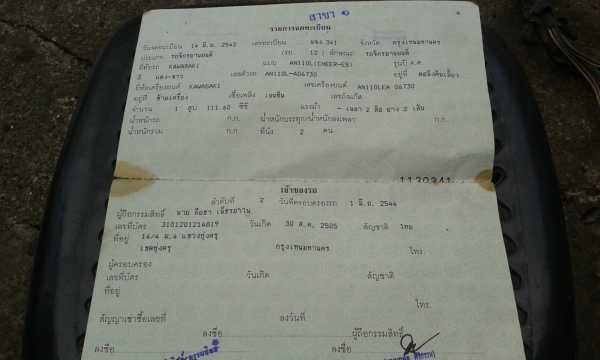 สาขา ๑
รายการจดทะเบียน
วันจดทะเบียน 14 มิ.ย. 2542 เลขทะเบียน 341 จังหวัด กรุงเทพมหานคร
ประเภท รถจักรยานยนต์ (รย 12) ลักษณะ รถจักรยานยนต์
ยี่ห้อรถ KAWASAKI แบบ AN110L(CHEER-ES) รุ่นปี ค.ศ.
สี แดง-ขาว เลขตัวรถ AN110L-A06730 อยู่ที่ คอถังคอเลี้ยว
ยี่ห้อเครื่องยนต์ KAWASAKI เลขเครื่องยนต์ AN110LEA 06730
อยู่ที่ ข้างเครื่อง เชื้อเพลิง เบนซิน เลขถังแก๊ส
จำนวน 1 สูบ 111.60 ซีซี แรงม้า - เพลา 2 ล้อ ยาง 2 เส้น
น้ำหนักรถ ก.ก. น้ำหนักบรรทุก/น้ำหนักลงเพลา ก.ก.
น้ำหนักรวม ก.ก. ที่นั่ง 2 คน
1130341
เจ้าของรถ
ลำดับที่ 2 วันที่ครอบครองรถ 1 มิ.ย. 2544
ผู้ถือกรรมสิทธิ์ นาย
เลขที่บัตร 3101201214819 วันเกิด 30 ส.ค. 2505 สัญชาติ ไทย
ที่อยู่ 14/4 ม.4 แขวงทุ่งครุ
เขตทุ่งครุ กรุงเทพมหานคร โทร.
ผู้ครอบครอง
เลขที่บัตร วันเกิด สัญชาติ
ที่อยู่
โทร.
สัญญาเช่าซื้อเลขที่ ลงวันที่
ลงชื่อ ผู้ถือกรรมสิทธิ์
ลงชื่อ ลงชื่อ